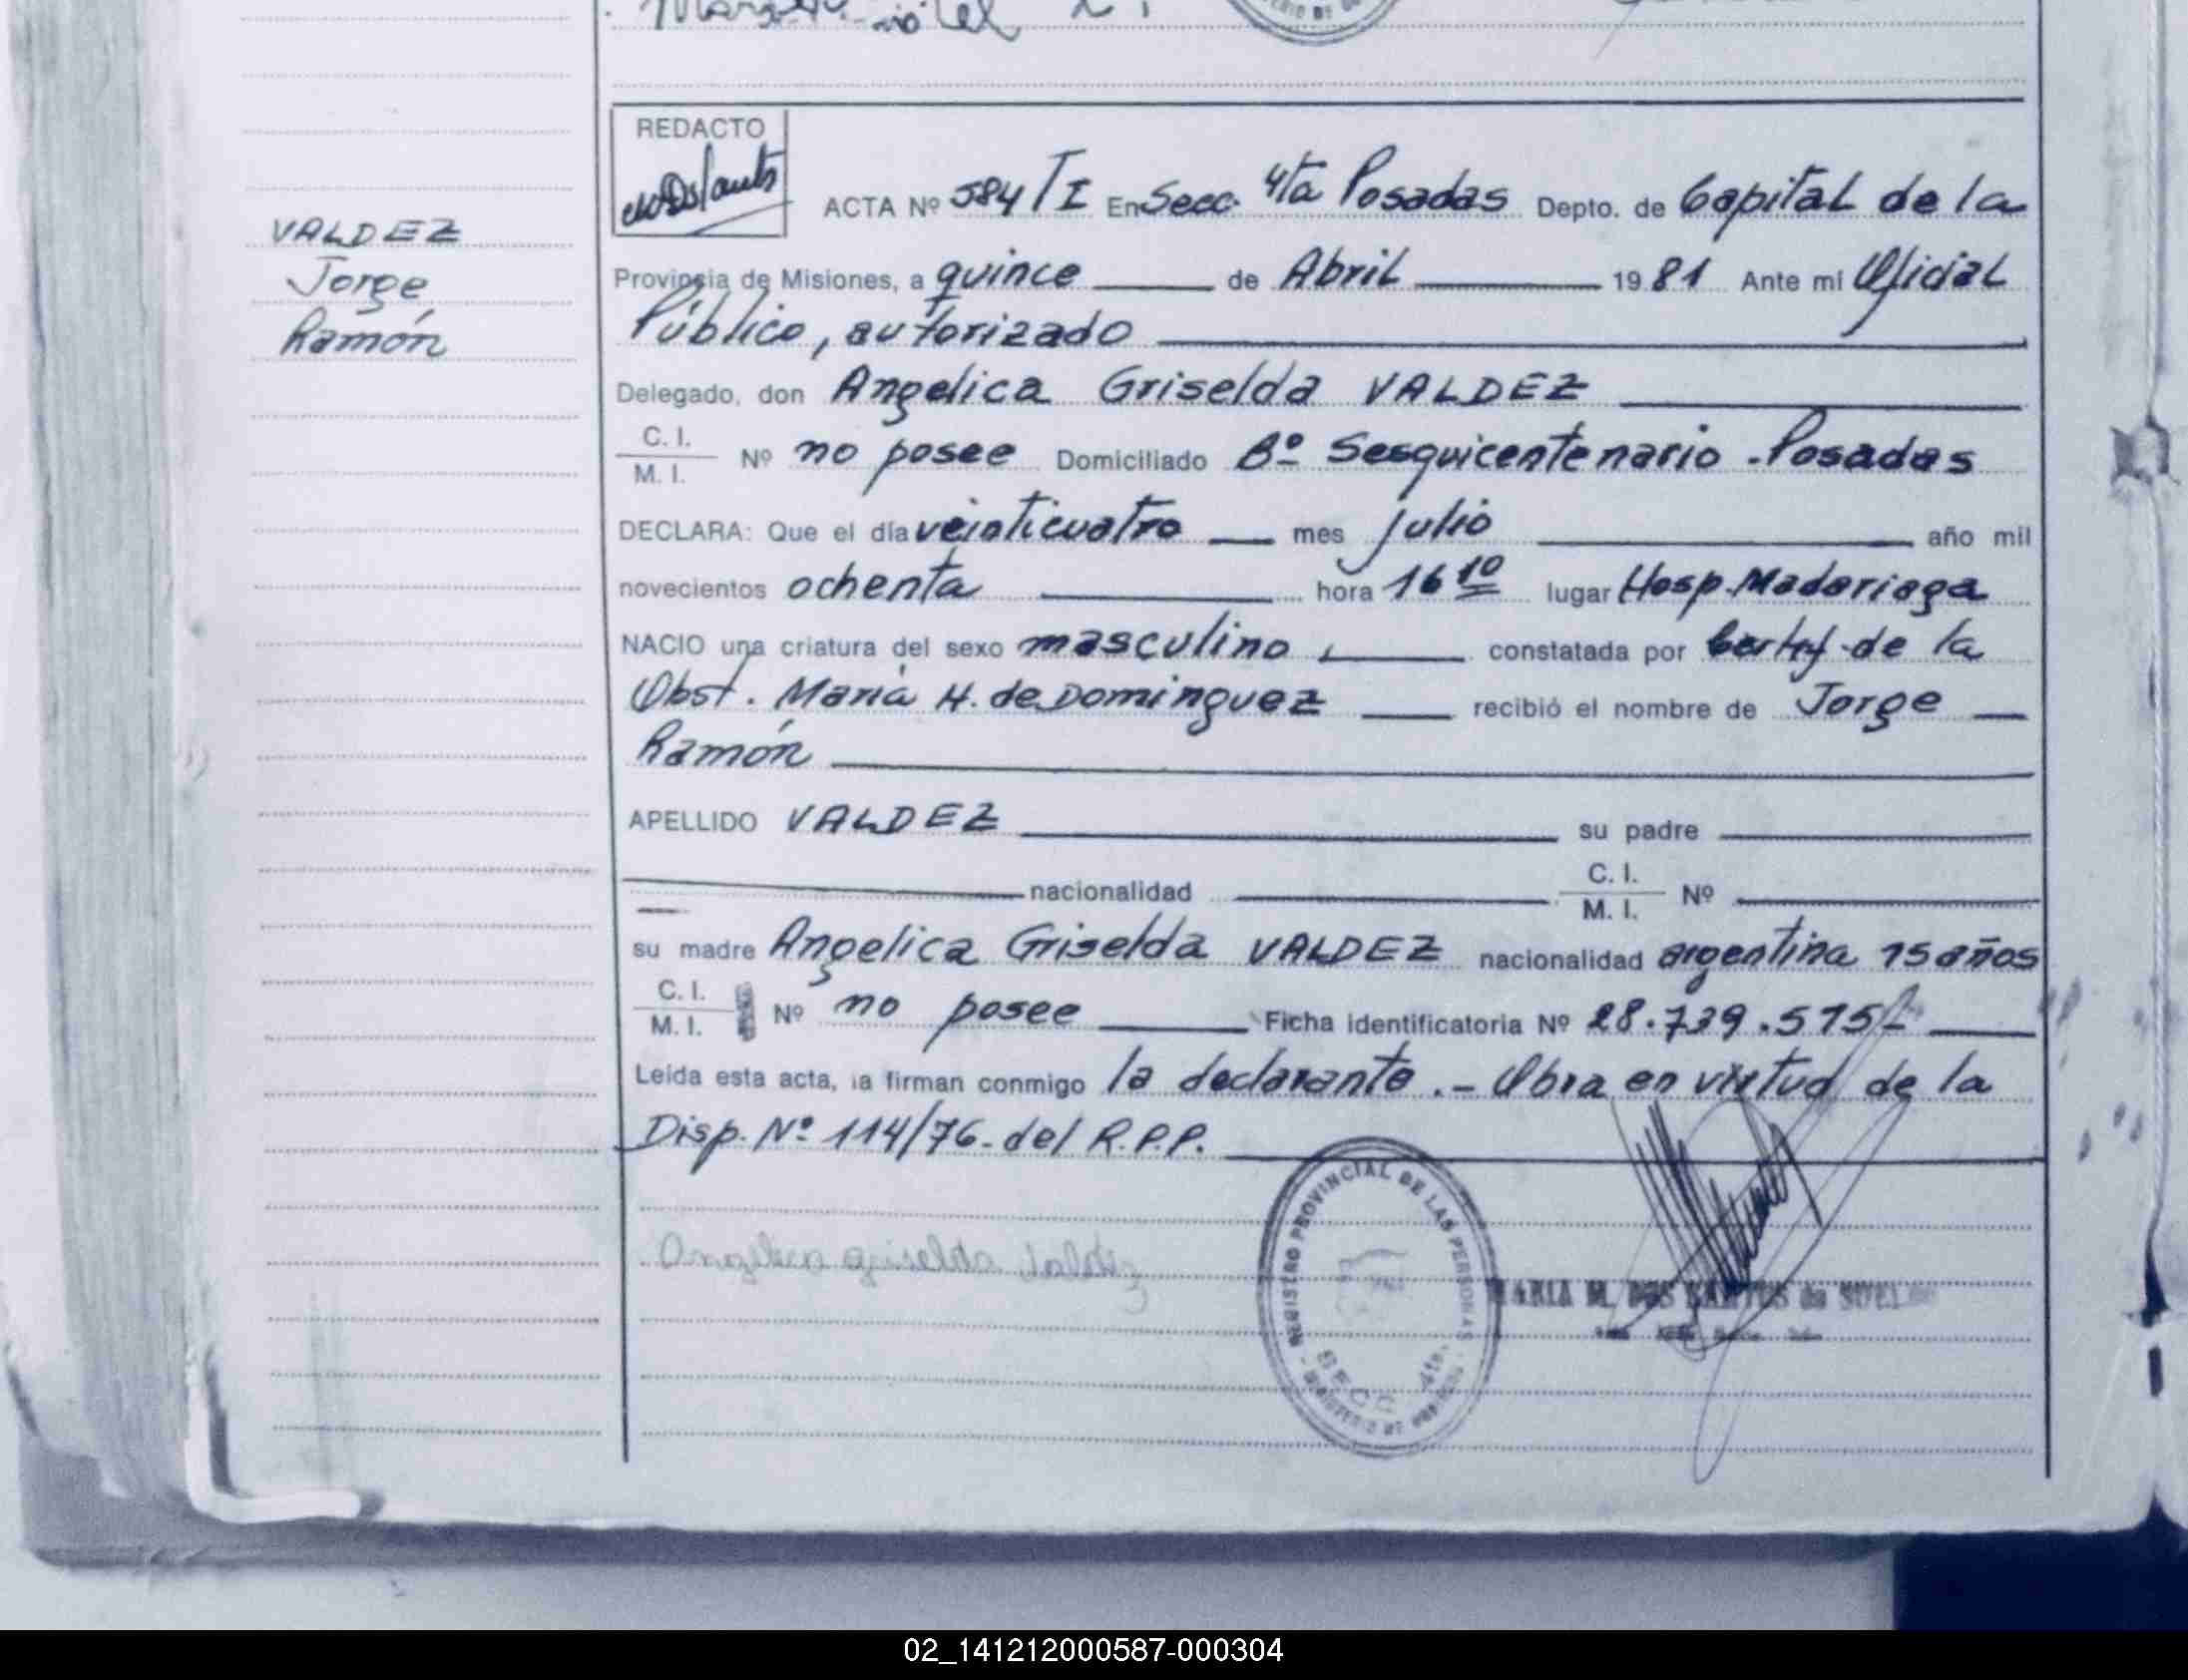 REDACTO
ACTA Nº 584/I En Secc. 4ta Posadas Depto. de Capital de la
VALDEZ
Jorge
Ramón
Provincia de Misiones, a quince de Abril 1981 Ante mi Oficial
Público, autorizado
Delegado, don Angelica Griselda VALDEZ
C. I.
M. I. Nº no posee Domiciliado Bº Sesquicentenario - Posadas
DECLARA: Que el día veinticuatro mes julio año mil
novecientos ochenta hora 16 10 lugar Hosp. Madariaga
NACIO una criatura del sexo masculino, constatada por de la
Obst. Maria H. de Dominguez recibió el nombre de Jorge
Ramón
APELLIDO VALDEZ su padre
nacionalidad C. I. M. I. Nº
su madre Angelica Griselda VALDEZ nacionalidad argentina 15 años
C. I.
M. I. Nº no posee Ficha identificatoria Nº 28.739.515
Leída esta acta, la firman conmigo la declarante.- Obra en virtud de la
Disp. Nº 114/76 - del R.P.P.
Angelica Griselda Valdez
REGISTRO PROVINCIAL DE LAS PERSONAS
SECC. 4ta.
MARIA M. DOS SANTOS de
02_141212000587-000304